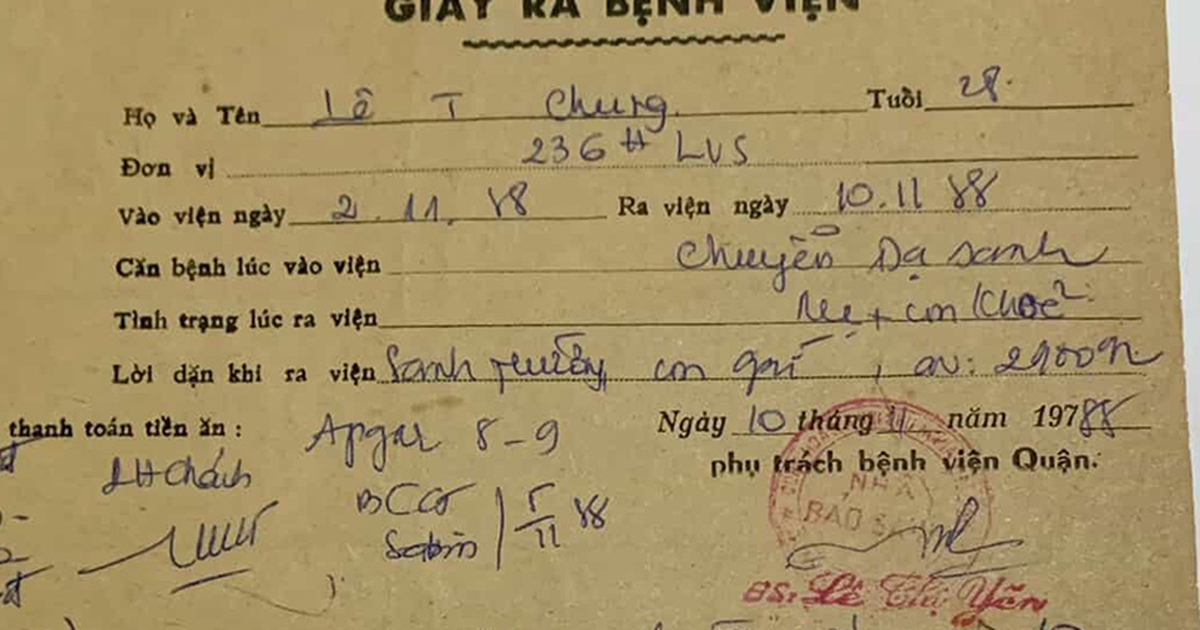 GIẤY RA BỆNH VIỆN
Họ và Tên Lê T Chung. Tuồi 28.
Đơn vị 236 LVS
Vào viện ngày 2.11.88 Ra viện ngày 10.11 88
Căn bệnh lúc vào viện Chuyển Dạ sanh
Tình trạng lúc ra viện Mẹ + con khoẻ
Lời dặn khi ra viện Sanh thường, con gái, CN: 2900g
thanh toán tiền ăn : Apgar 8-9 Ngày 10 tháng 11 năm 19788
phụ trách bệnh viện Quận.
BCG
Sabin 5/11 88
NHÀ
BẢO S
BS: Lê Thị Yến